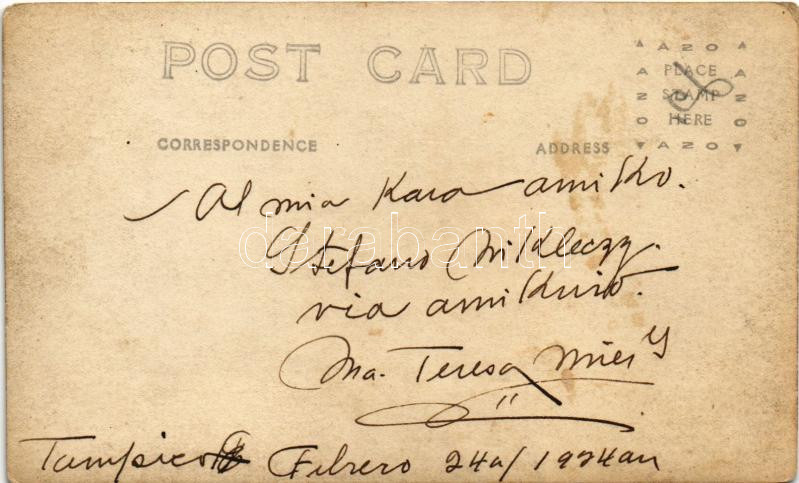 POST CARD
AZO
PLACE
STAMP
HERE
AZO
CORRESPONDENCE ADDRESS
Al mia Kara amiko.
Stefano Mikleczy.
via amikino.
Ma. Teresa
Tampico Febrero 24a/1924an
darabanth